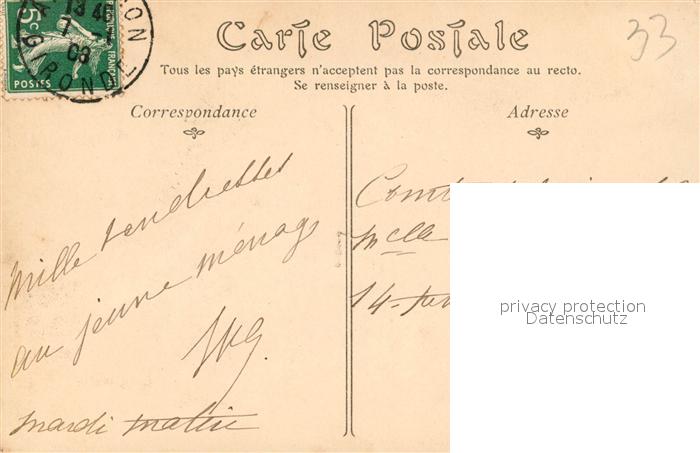 5c
POSTES
13 45
7
08
GIRONDE
Carte Postale
33
Tous les pays étrangers n'acceptent pas la correspondance au recto.
Se renseigner à la poste.
Correspondance
Mille tendresses
au jeune ménage
mardi matin
Adresse
Mcelle
14
privacy protection
Datenschutz